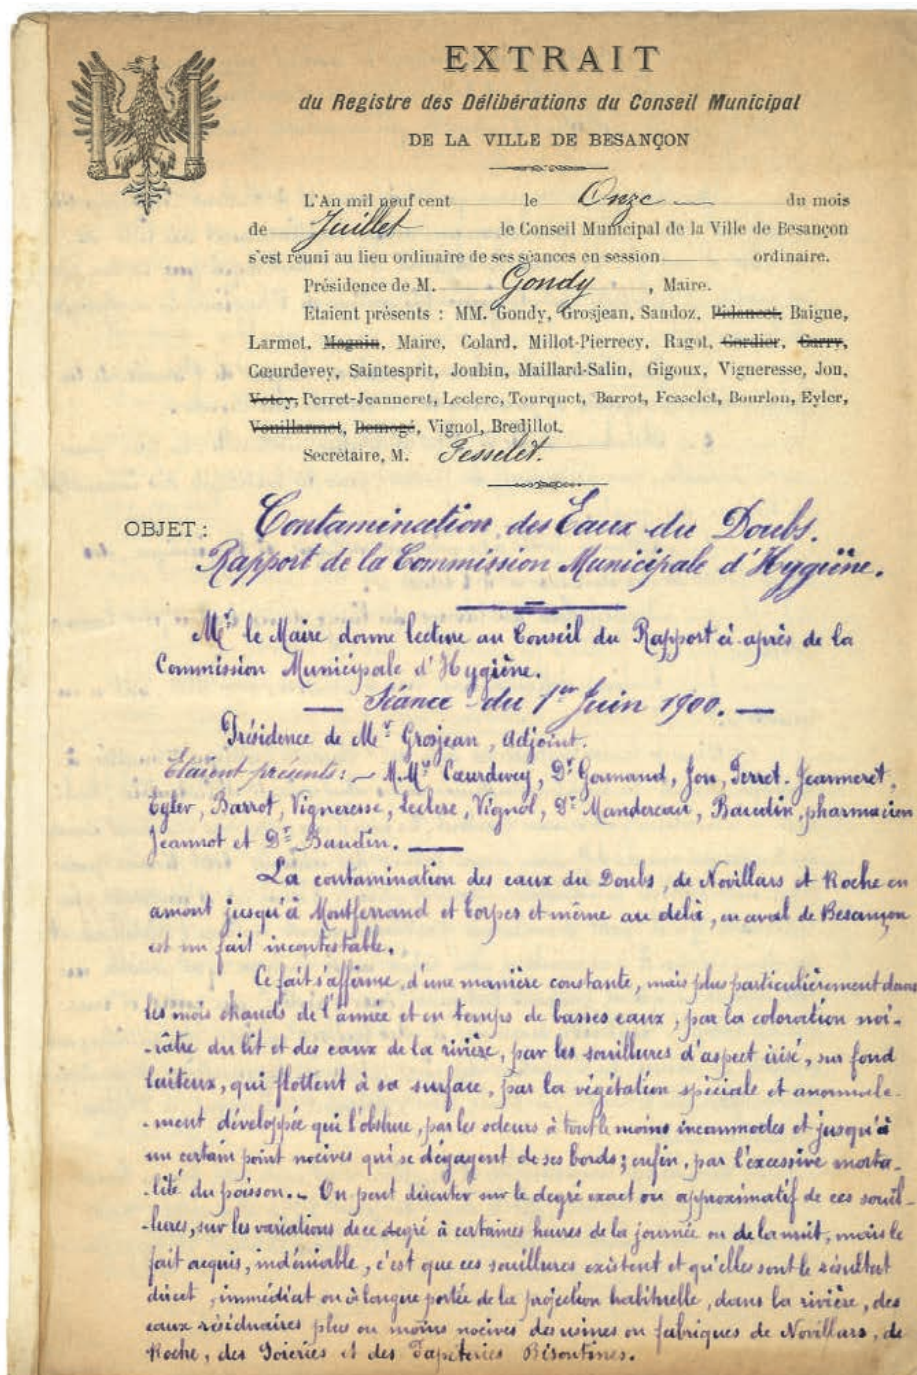 EXTRAIT
du Registre des Délibérations du Conseil Municipal
DE LA VILLE DE BESANÇON
L'An mil neuf cent le Onze du mois
de Juillet le Conseil Municipal de la Ville de Besançon
s'est réuni au lieu ordinaire de ses séances en session ordinaire.
Présidence de M. Gondy, Maire.
Etaient présents : MM. Gondy, Grosjean, Sandoz, Pidancet, Baigue,
Larmet, Magnin, Maire, Colard, Millot-Pierrecy, Ragot, Cordier, Garry,
Cœurdevey, Saintesprit, Joubin, Maillard-Salin, Gigoux, Vigneresse, Jon,
Votey, Perret-Jeanneret, Leclerc, Tourquet, Barrot, Fesselet, Bourlon, Eyler,
Vouillarmet, Demogé, Vignol, Bredillot.
Secrétaire, M. Fesselet.
OBJET : Contamination des Eaux du Doubs.
Rapport de la Commission Municipale d'Hygiène.
Mr le Maire donne lecture au Conseil du Rapport ci après de la
Commission Municipale d'Hygiène.
— Séance du 1er Juin 1900. —
Présidence de Mr Grosjean, Adjoint.
Etaient présents : — M.Mrs Cœurdevey, Dr Gormand, Jon, Perret-Jeanneret,
Eyler, Barrot, Vigneresse, Leclerc, Vignol, Dr Mandereau, Baudin, pharmacien
Jeannot et Dr Baudin. —
La contamination des eaux du Doubs, de Novillars et Roche en
amont jusqu'à Montferrand et Torpes et même au delà, en aval de Besançon
est un fait incontestable.
Ce fait s'affirme, d'une manière constante, mais plus particulièrement dans
les mois chauds de l'année et en temps de basses eaux, par la coloration noi-
-râtre du lit et des eaux de la rivière, par les souillures d'aspect irisé, sur fond
laiteux, qui flottent à sa surface, par la végétation spéciale et anormale-
-ment développée qui l'obstrue, par les odeurs à tout le moins incommodes et jusqu'à
un certain point nocives qui se dégagent de ses bords ; enfin, par l'excessive morta-
-lité du poisson. — On peut discuter sur le degré exact ou approximatif de ces souil-
-lures, sur les variations de ce degré à certaines heures de la journée ou de la nuit, mais le
fait acquis, indéniable, c'est que ces souillures existent et qu'elles sont le résultat
direct, immédiat ou à longue portée de la projection habituelle, dans la rivière, des
eaux résiduaires plus ou moins nocives des usines ou fabriques de Novillars, de
Roche, des Soieries et des Papeteries Bisontines.